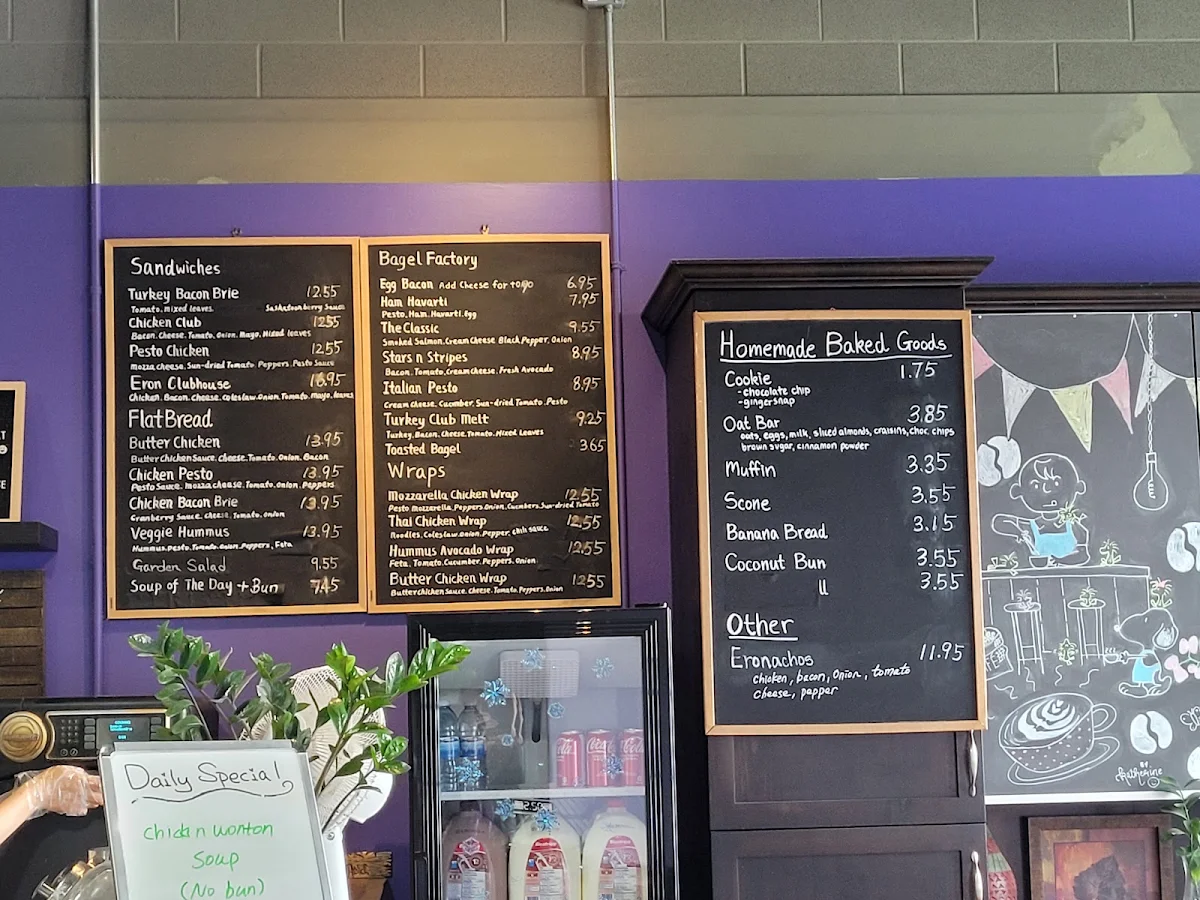 Sandwiches
Turkey Bacon Brie 12.55
Tomato, mixed leaves. Saskatoonberry Sauce
Chicken Club 12.55
Bacon, Cheese, Tomato, Onion, Mayo, Mixed leaves
Pesto Chicken 12.55
mozza cheese, Sun-dried Tomato, Peppers, Pesto Sauce
Eron Clubhouse 16.95
Chicken, Bacon, cheese, coleslaw, Onion, Tomato, mayo, leaves
FlatBread
Butter Chicken 13.95
Butter Chicken Sauce, cheese, Tomato, Onion, Bacon
Chicken Pesto 13.95
Pesto Sauce, mozza cheese, Tomato, onion, Peppers
Chicken Bacon Brie 13.95
Cranberry Sauce, cheese, Tomato, onion
Veggie Hummus 13.95
Hummus, Pesto, Tomato, Onion, Peppers, Feta
Garden Salad 9.55
Soup of The Day + Bun 7.45
Bagel Factory
Egg Bacon Add Cheese for 6.95
Ham Havarti 7.95
Pesto, Ham, Havarti, Egg
The Classic 9.55
Smoked Salmon, Cream Cheese Black Pepper, Onion
Stars n Stripes 8.95
Bacon, Tomato, Cream Cheese, Fresh Avocado
Italian Pesto 8.95
Cream cheese, Cucumber, Sun-dried Tomato, Pesto
Turkey Club Melt 9.25
Turkey, Bacon, Cheese, Tomato, Mixed Leaves
Toasted Bagel 3.65
Wraps
Mozzarella Chicken Wrap 12.55
Pesto Mozzarella, Peppers, Onion, Cucumbers, Sun-dried Tomato
Thai Chicken Wrap 12.55
Noodles, Coleslaw, Onion, Pepper, chili sauce
Hummus Avocado Wrap 12.55
Feta, Tomato, Cucumber, Pepper, Onion
Butter Chicken Wrap 12.55
Butter Chicken Sauce, Cheese, Tomato, Pepper, Onion
Homemade Baked Goods
Cookie 1.75
-chocolate chip
-gingersnap
Oat Bar 3.85
oats, eggs, milk, sliced almonds, craisins, choc. chips
brown sugar, cinnamon powder
Muffin 3.35
Scone 3.55
Banana Bread 3.15
Coconut Bun 3.55
3.55
Other
Eronachos 11.95
chicken, bacon, onion, tomato
cheese, pepper
BY
Katherine
Daily Special
chicken wonton
Soup
(No bun)